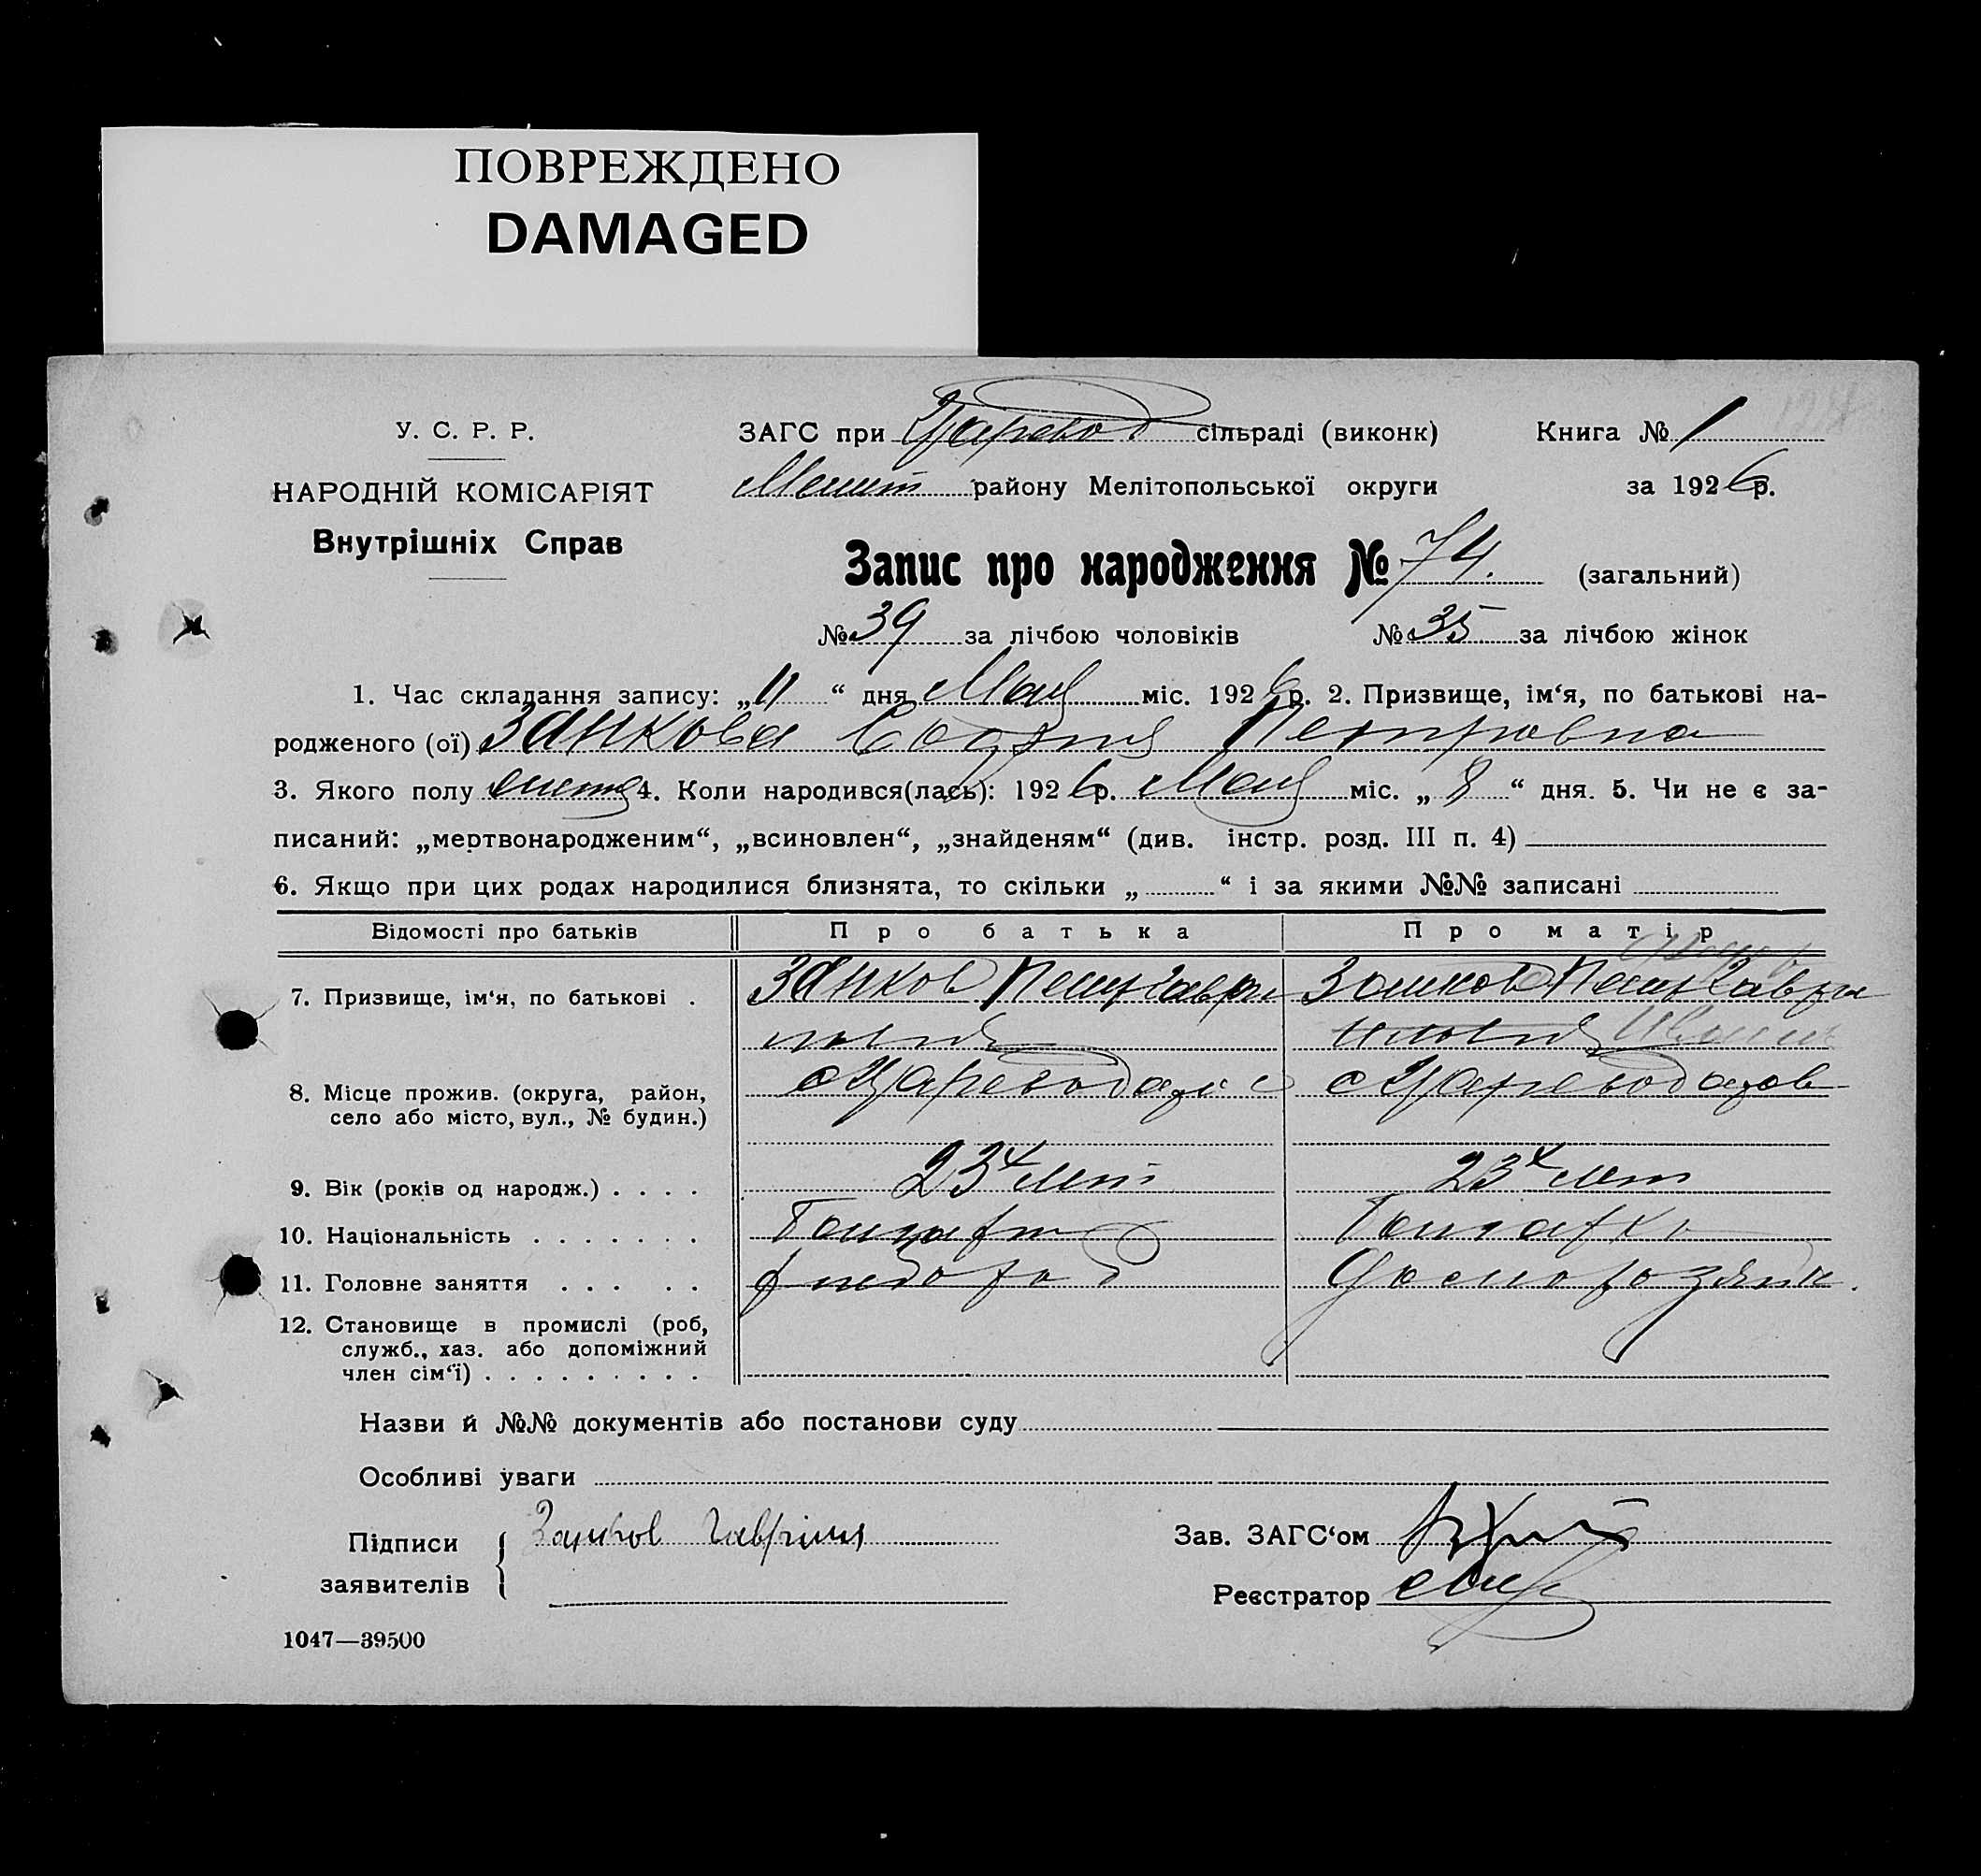 ПОВРЕЖДЕНО
DAMAGED
У. С. Р. Р.
НАРОДНІЙ КОМІСАРІЯТ
Внутрішніх Справ
ЗАГС при Царевод сільраді (виконк)
Книга № 1
Мелит району Мелітопольської округи
за 1926 р.
Запис про народження № 74. (загальний)
№ 39 за лічбою чоловіків № 35 за лічбою жінок
1. Час складання запису: „11“ дня Мая міс. 1926 р. 2. Призвище, ім‘я, по батькові на-
родженого (ої) Занкова Петровна
3. Якого полу 4. Коли народився(лась): 1926 р. Мая міс. „8“ дня. 5. Чи не є за-
писаний: „мертвонародженим“, „всиновлен“, „знайденям“ (див. інстр. розд. III п. 4)
6. Якщо при цих родах народилися близнята, то скільки „ “ і за якими №№ записані
Відомості про батьків Про батька Про матір
7. Призвище, ім‘я, по батькові . Занков Петр Гаври Занков Петр Гаври
лович илович
8. Місце прожив. (округа, район, с Царевода с Цареводаров
село або місто, вул., № будин.)
9. Вік (років од народж.) . . . . 23 лет 23 лет
10. Національність . . . . . . .
11. Головне заняття . . . . . хлебороб домохозяйк.
12. Становище в промислі (роб,
служб., хаз. або допоміжний
член сім‘ї) . . . . . . . . .
Назви й №№ документів або постанови суду
Особливі уваги
Підписи Занков Гаврил
заявителів
Зав. ЗАГС‘ом
Реєстратор
1047—39500